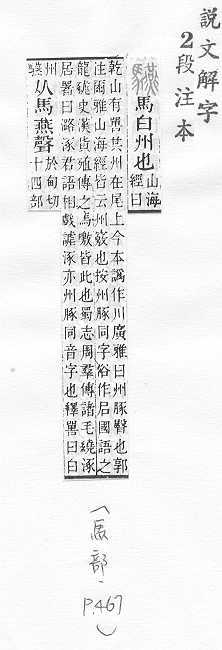 說文解字
2段注本
驠 馬白州也 山海
經曰
乾山有獸其州在尾上今本譌作川廣雅曰州豚臀也郭
注爾雅山海經皆云州竅也按州豚同字俗作𡰪國語之
龍 史漢貨殖傳之馬噭皆此也蜀志周羣傳諸毛繞涿
居署曰潞涿君語相戲謔涿亦州豚同音字也釋嘼曰白
州
驠 从馬燕聲 於甸切
十四部
(馬部、P.467)